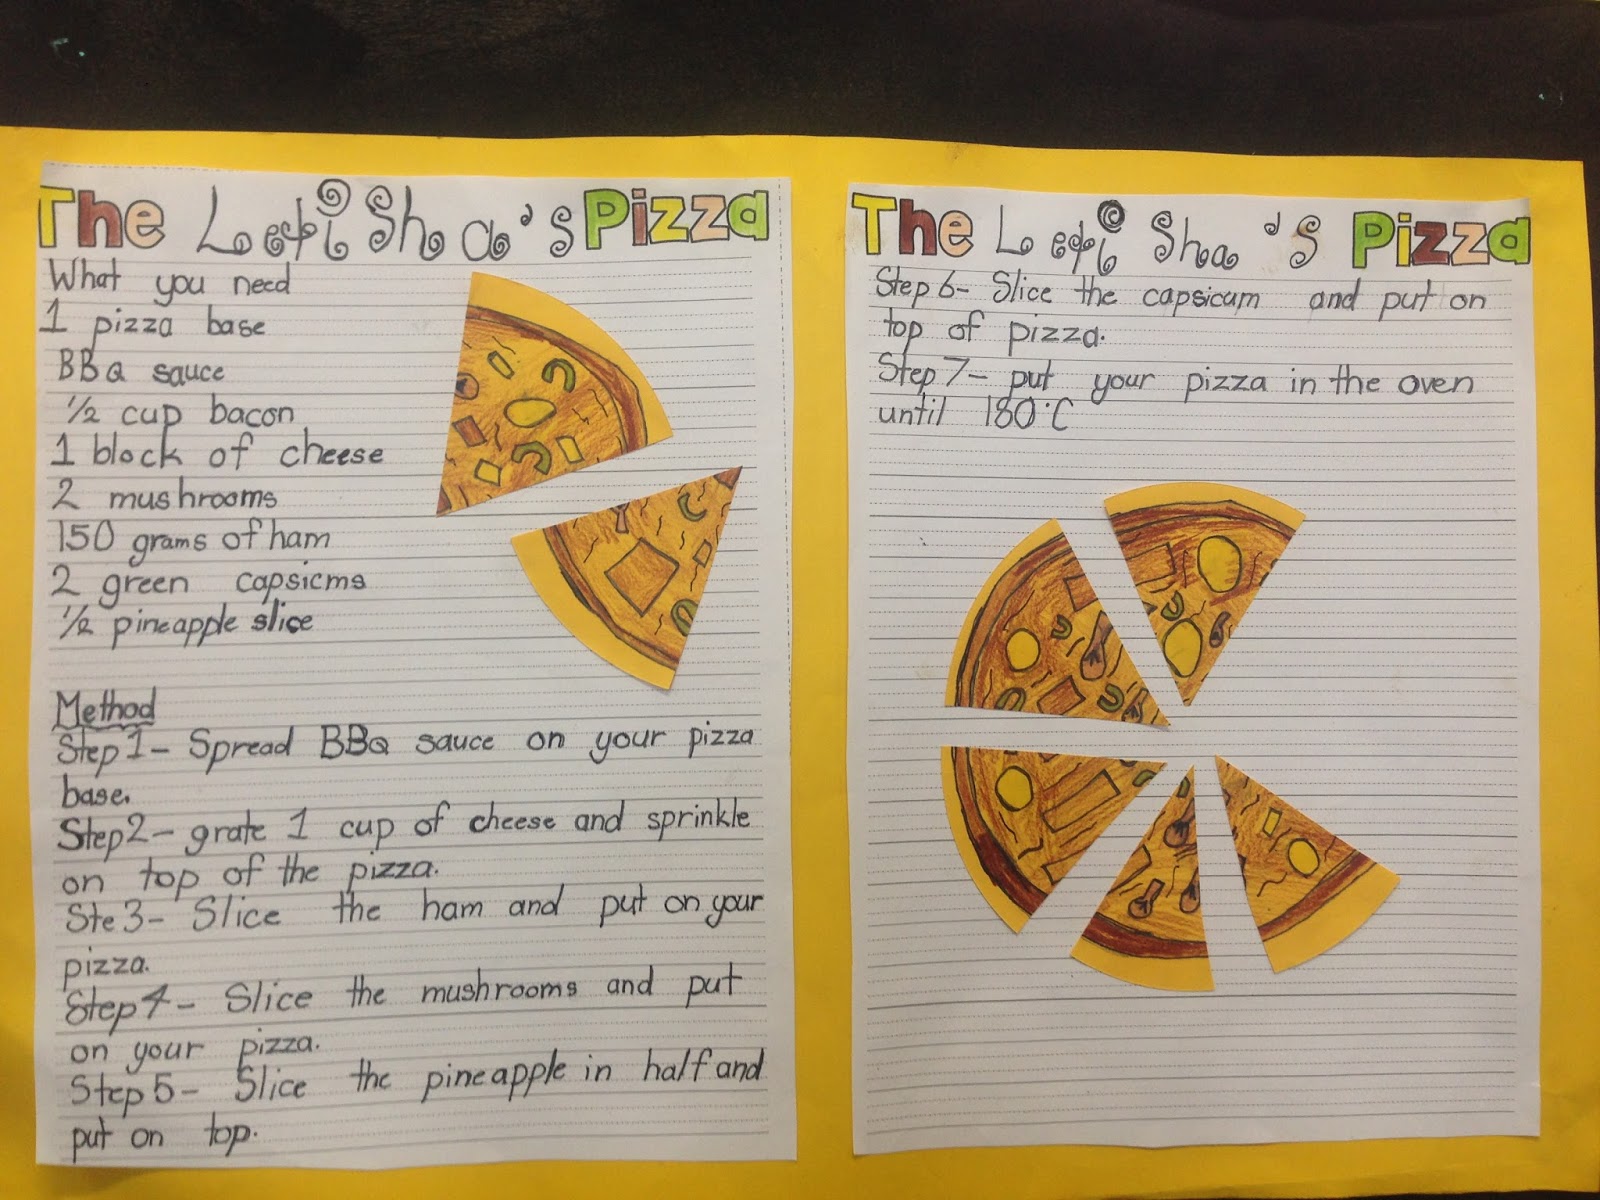 The LetiSha's Pizza
What you need
1 pizza base
BBQ sauce
1/2 cup bacon
1 block of cheese
2 mushrooms
150 grams of ham
2 green capsicms
1/2 pineapple slice
Method
Step 1- Spread BBQ sauce on your pizza
base.
Step2- grate 1 cup of cheese and sprinkle
on top of the pizza.
Ste 3- Slice the ham and put on your
pizza.
Step 4- Slice the mushrooms and put
on your pizza.
Step 5- Slice the pineapple in half and
put on top.
The LetiSha's Pizza
Step 6- Slice the capsicum and put on
top of pizza.
Step 7- put your pizza in the oven
until 180°C